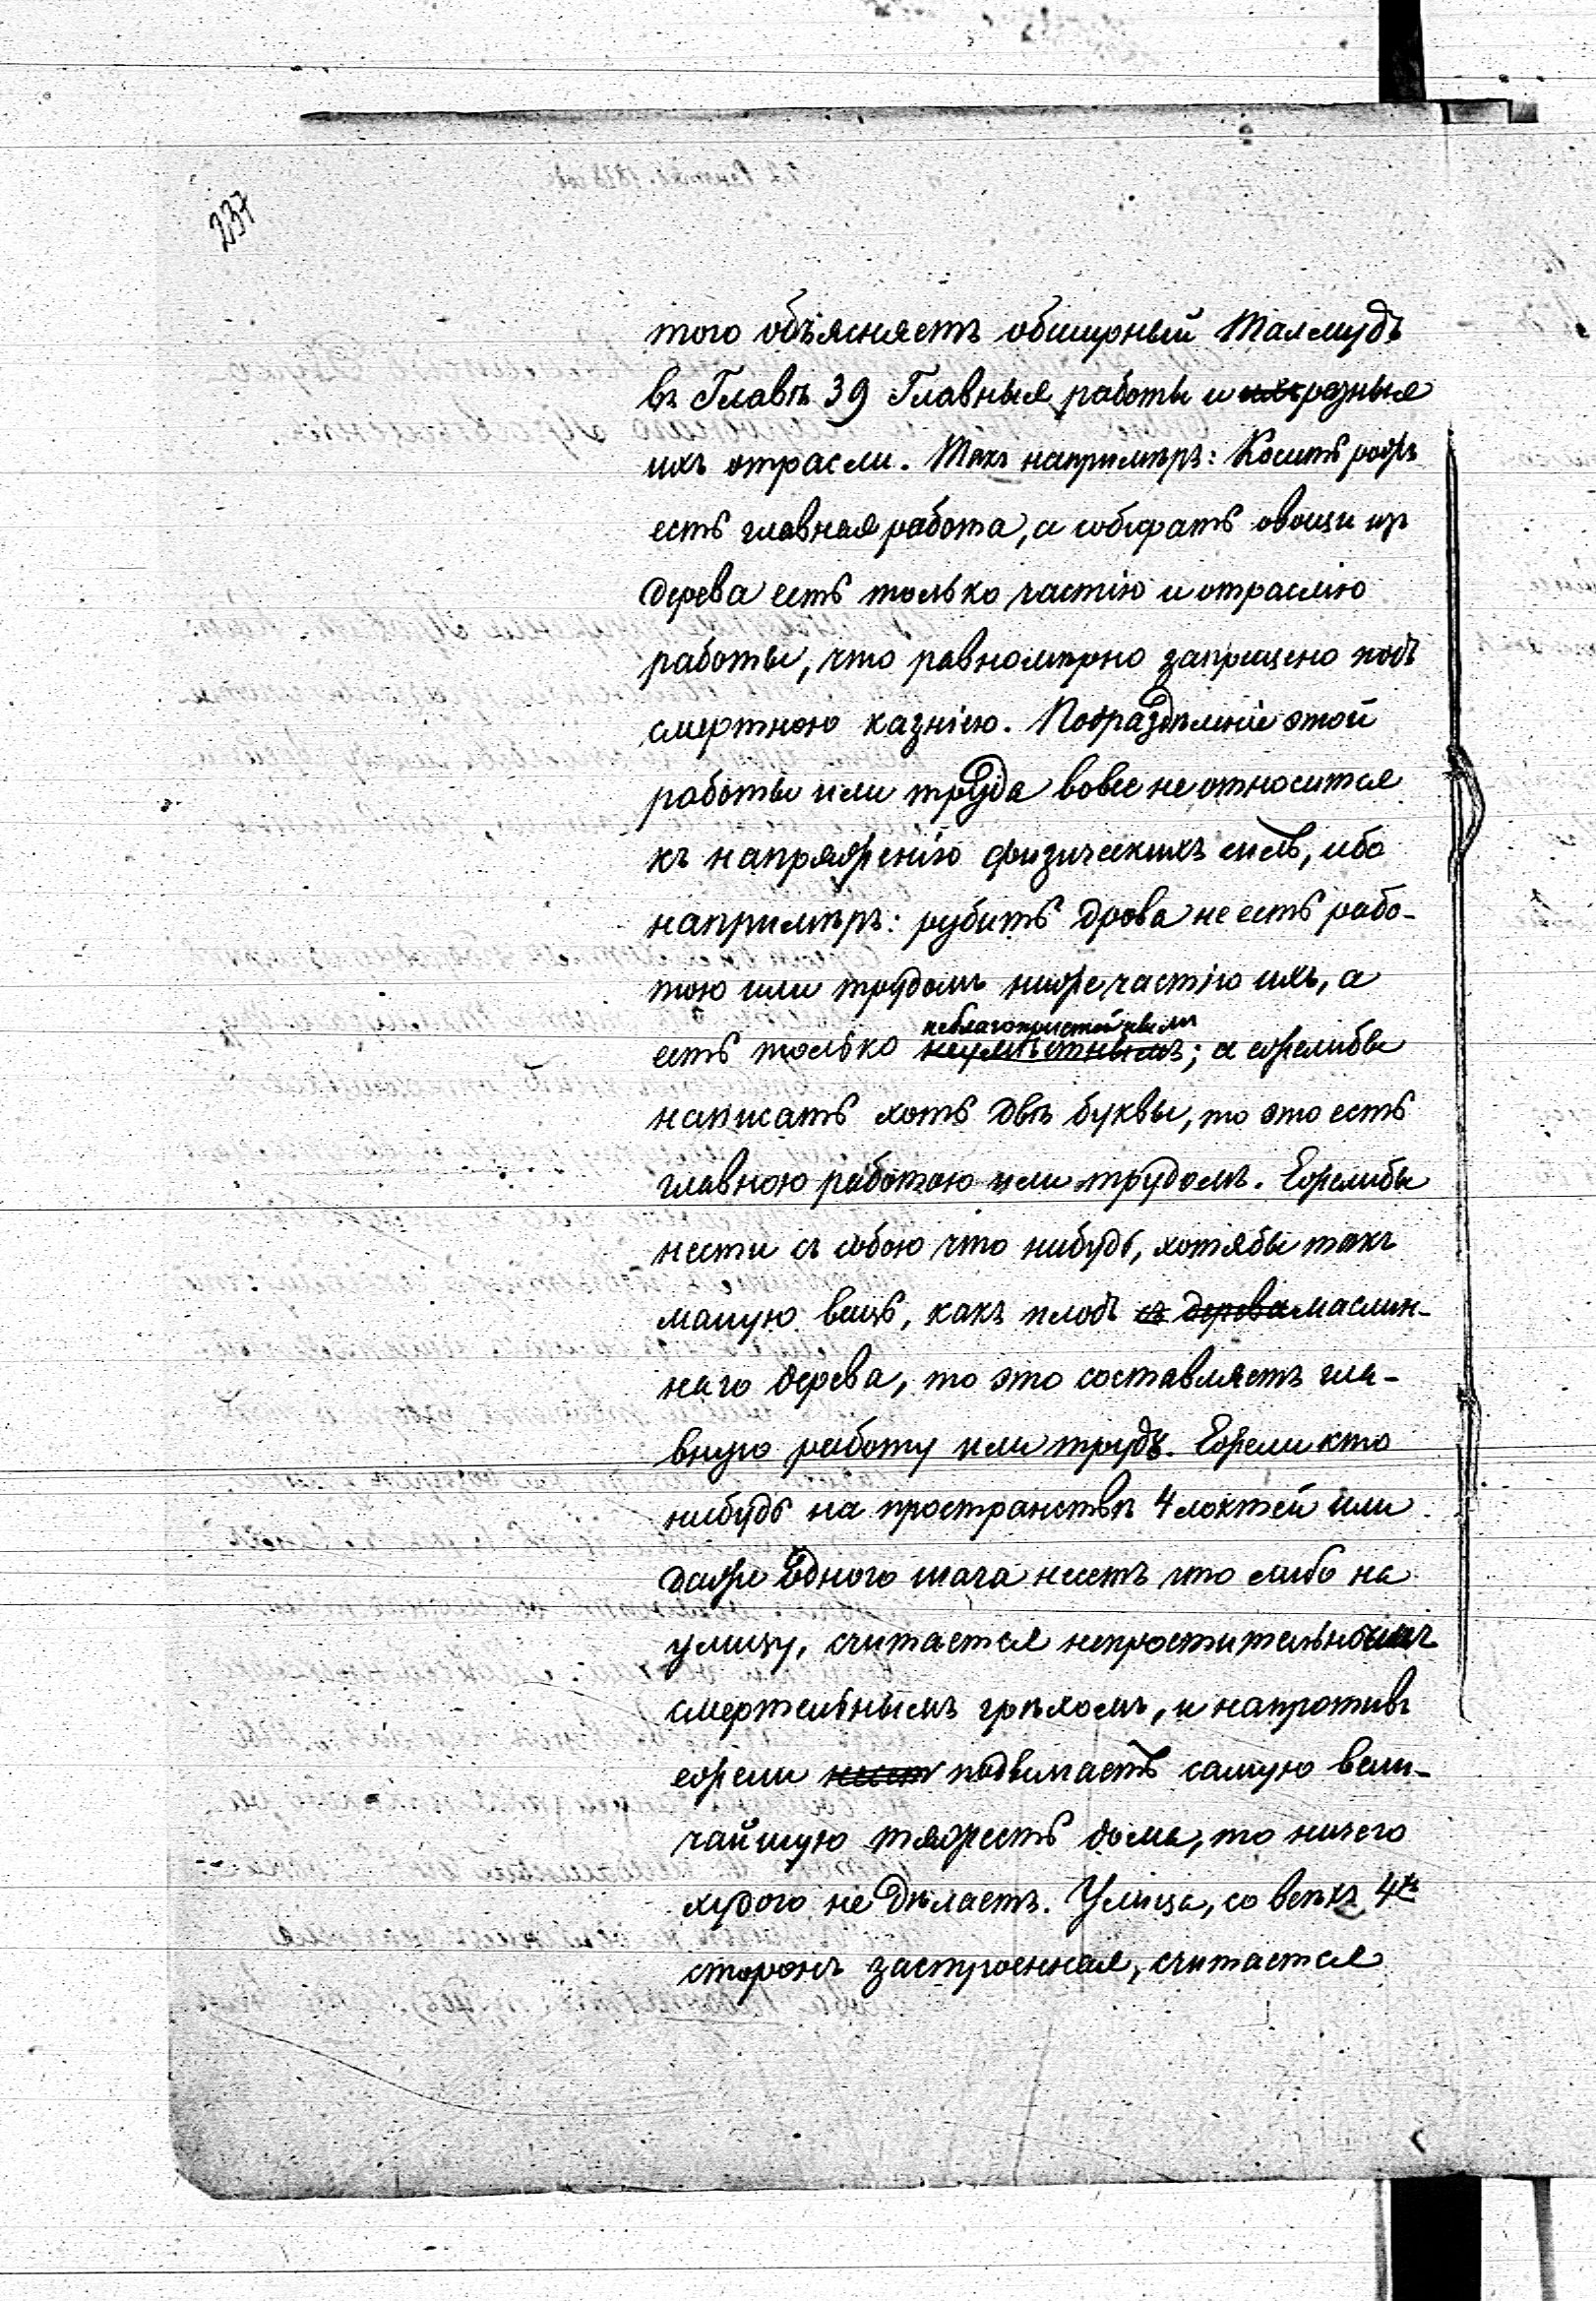 237
того объясняетъ обширный Талмудъ
въ Главѣ 39 Главныя работы и ихъ разныя
ихъ отрасли. Такъ напримѣръ: Косить рожь
есть главная работа, а собирать овощи изъ
дерева есть только частію и отраслію
работы, что равномѣрно запрещено подъ
смертною казнію. Подраздѣленіе этой
работы или труда вовсе не относится
къ напряженію физическихъ силъ, ибо
напримѣръ: рубить дрова не есть рабо-
тою или трудомъ ниже частію ихъ, а
неблагопристойнымъ
есть только неумѣстнымъ; а ежелибы
написать хоть двѣ буквы, то это есть
главною работою или трудомъ. Ежелибы
нести съ собою что нибудь, хотябы такъ
малую вещь, какъ плодъ съ дерева маслин-
наго дерева, то это составляетъ гла-
вную работу или трудъ. Ежели кто
нибудь на пространствѣ 4 локтей или
даже одного шага несетъ что либо на
улицу, считается непростительнымъ
смертельнымъ грѣхомъ, и напротивъ
ежели несет подымаетъ самую вели-
чайшую тяжесть дома, то ничего
худого не дѣлаетъ. Улица, со всѣхъ 4хъ
сторонъ застроенная, считается